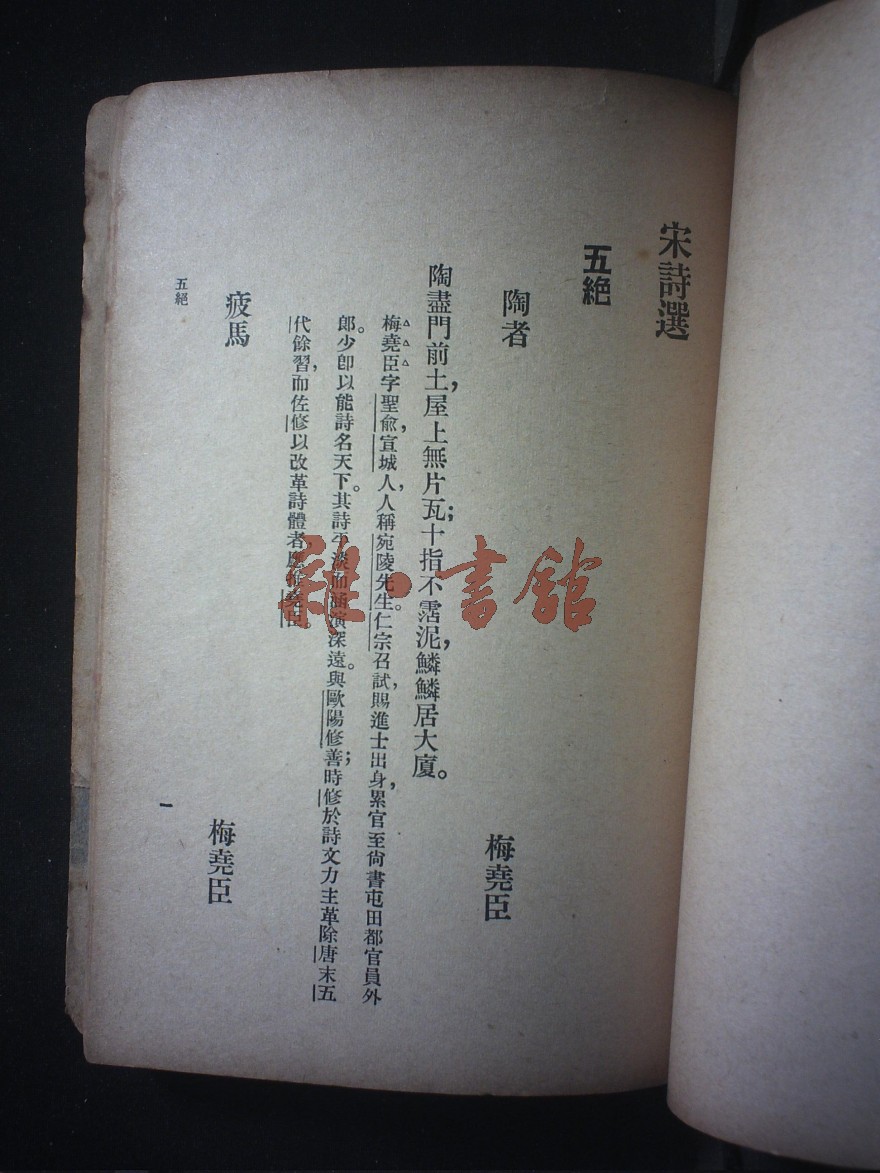 宋詩選
五絕
陶者
梅堯臣
陶盡門前土,屋上無片瓦;十指不霑泥,鱗鱗居大廈。
梅堯臣字聖俞,宣城人,人稱宛陵先生。仁宗召試,賜進士出身,累官至尙書屯田都官員外
郎。少卽以能詩名天下。其詩平淡而涵演深遠。與歐陽修善;時修於詩文力主革除唐末五
代餘習,而佐修以改革詩體者,應推堯臣。
疲馬
梅堯臣
五絕
一
雜·書館